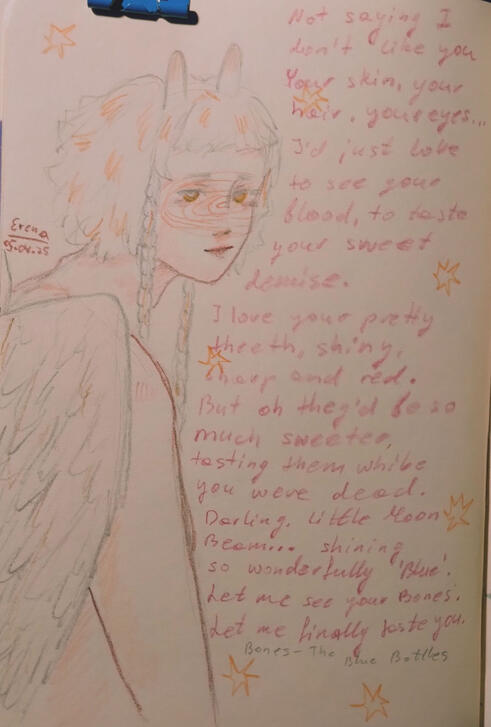 Not saying I
don't like you
Your skin, your
hair, your eyes...
I'd just love
to see your
blood, to taste
your sweet
demise.
I love your pretty
theeth, shiny,
sharp and red.
But oh they'd be so
much sweeter,
tasting them while
you were dead.
Darling, Little Moon
Beam... shining
so wonderfully 'Blue'.
Let me see your Bones.
Let me finally taste you.
Bones - The Blue Bottles
Erena
05.04.25